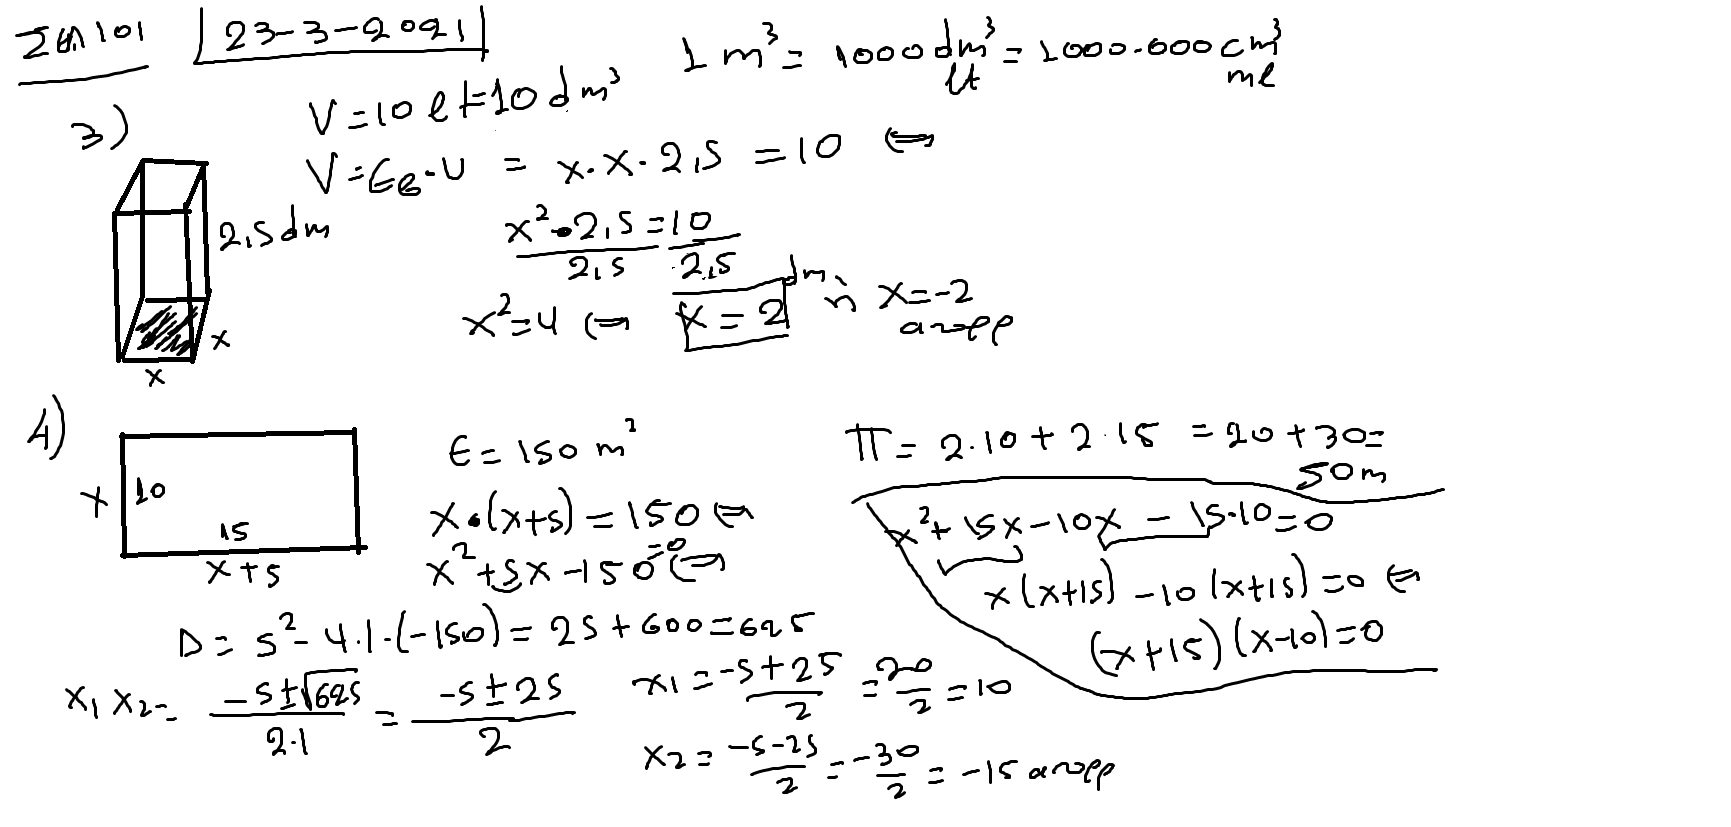 Σελ 101 23-3-2021
1 m³ = 1000 dm³ = 1000.000 cm³
lt ml
3)
V = 10 lt = 10 dm³
V = Εβ · υ = x · x · 2,5 = 10 ⇔
2,5 dm
x² · 2,5 = 10
2,5 2,5
x² = 4 ⇔ x = 2 dm ή x = -2
απορρ
x
x
4)
E = 150 m²
Π = 2·10 + 2·15 = 20 + 30 =
50 m
x 10
15
x + 5
x · (x+5) = 150 ⇔
x² + 5x - 150 = 0 ⇔
x² + 15x - 10x - 15·10 = 0
x(x+15) - 10(x+15) = 0 ⇔
(x+15)(x-10) = 0
D = 5² - 4·1·(-150) = 25 + 600 = 625
x₁ x₂ = (-5 ± √625)/(2·1) = (-5 ± 25)/2
x1 = (-5+25)/2 = 20/2 = 10
x2 = (-5-25)/2 = -30/2 = -15 απορρ